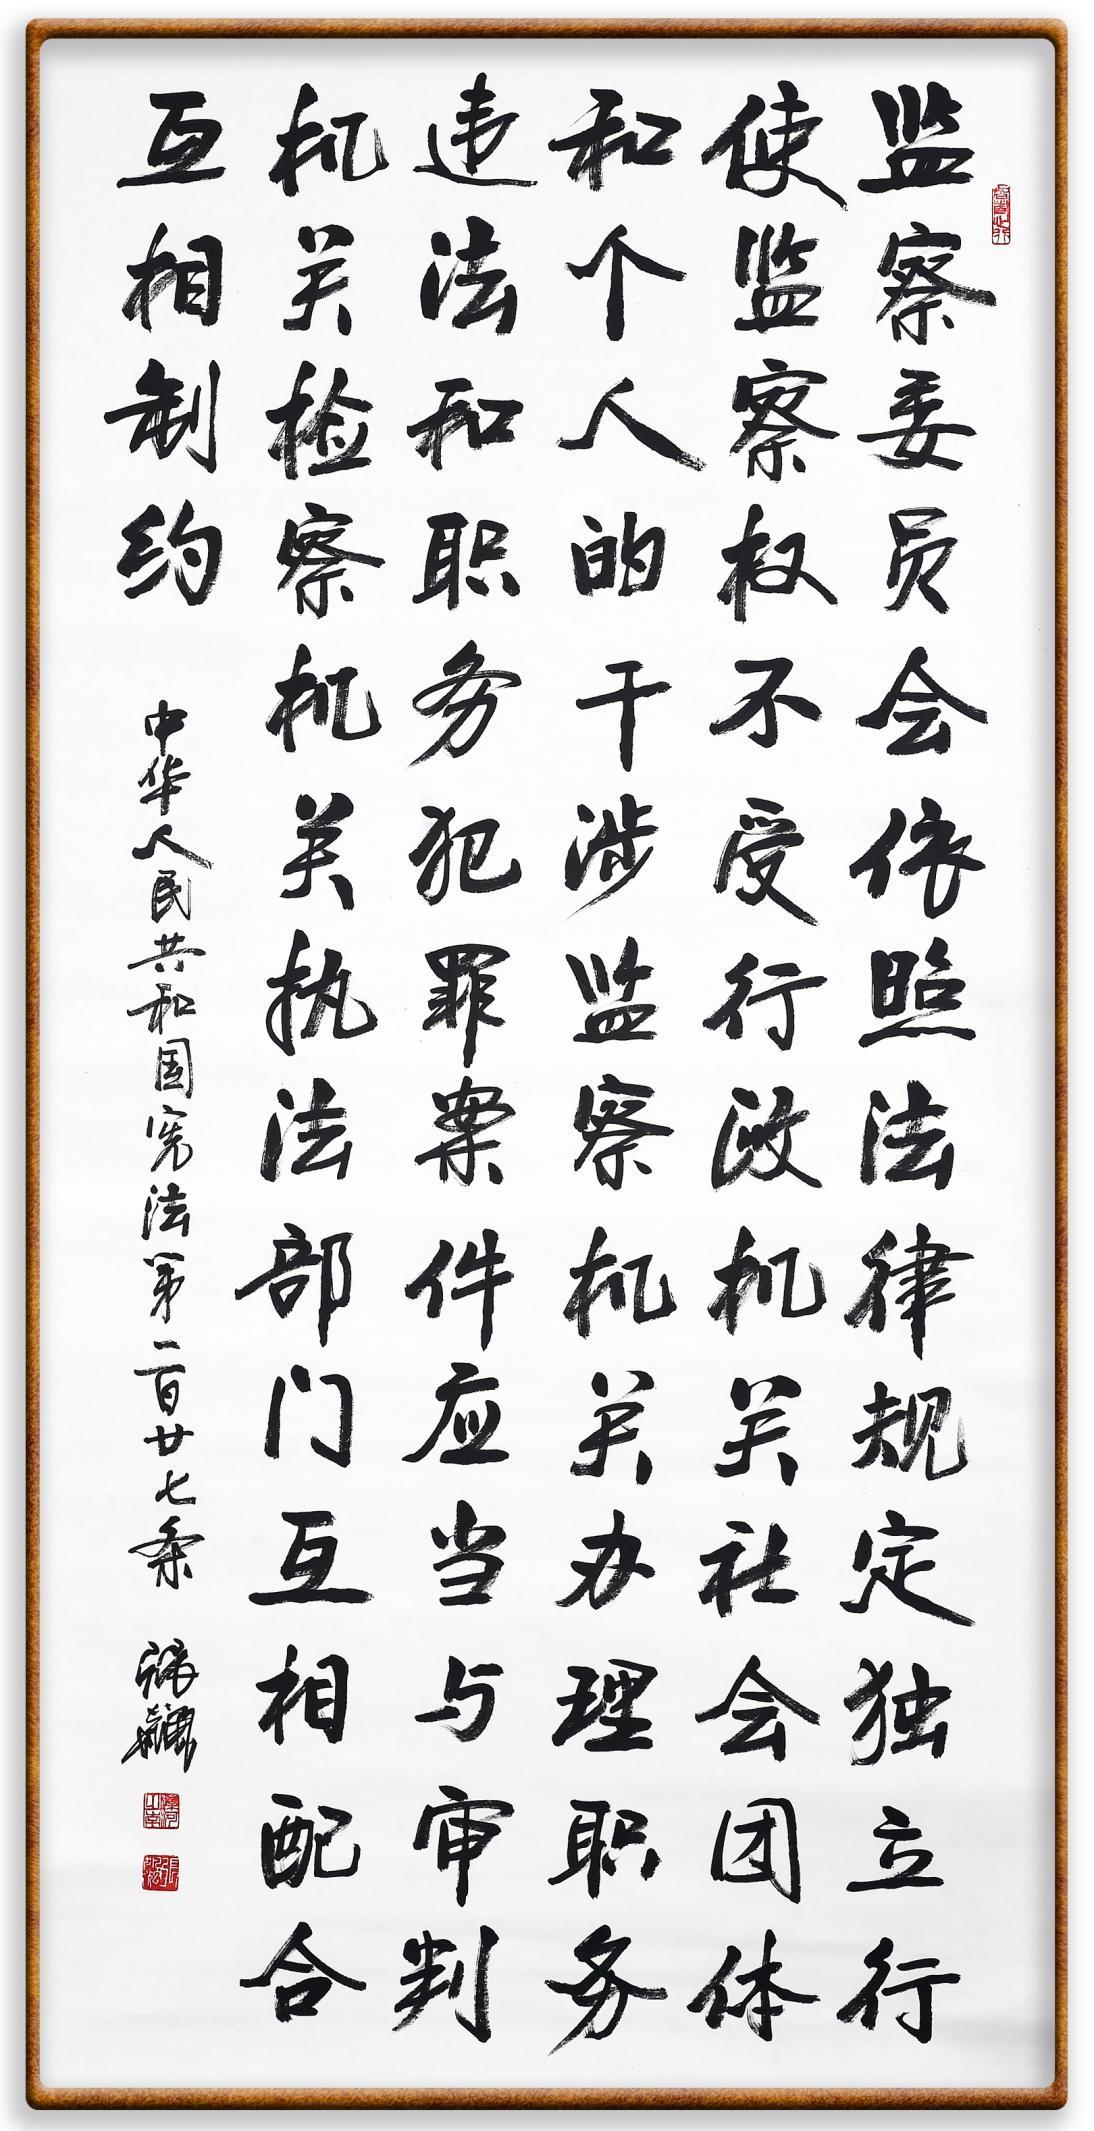 监察委员会依照法律规定独立行
使监察权不受行政机关社会团体
和个人的干涉监察机关办理职务
违法和职务犯罪案件应当与审判
机关检察机关执法部门互相配合
互相制约
中华人民共和国宪法第一百廿七条